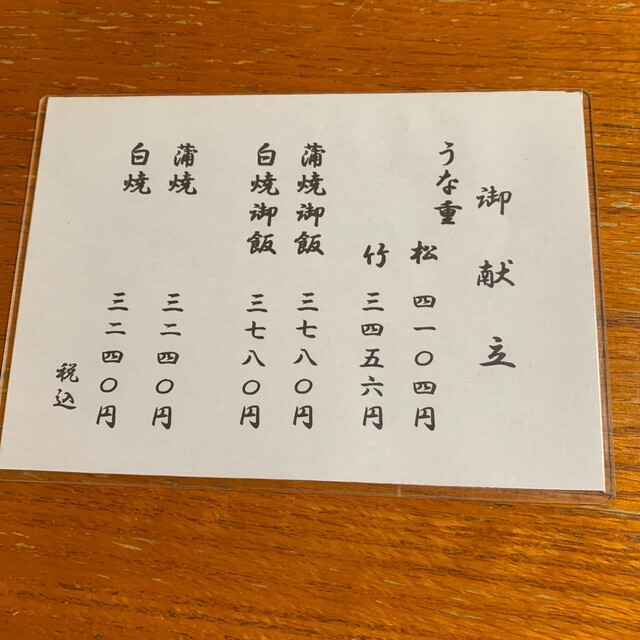 御献立
うな重
松 四一〇四円
竹 三四五六円
蒲焼御飯 三七八〇円
白焼御飯 三七八〇円
蒲焼 三二四〇円
白焼 三二四〇円
税込